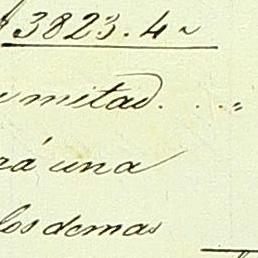 3823.4
mitad....„
rá una
los demas